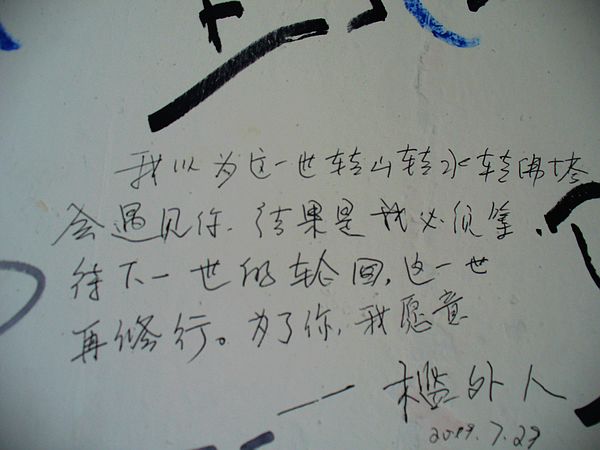 我以为这一世转山转水转佛塔
会遇见你.结果是我必须等.
待下一世的轮回,这一世
再修行。为了你,我愿意
—— 槛外人
2009.7.29